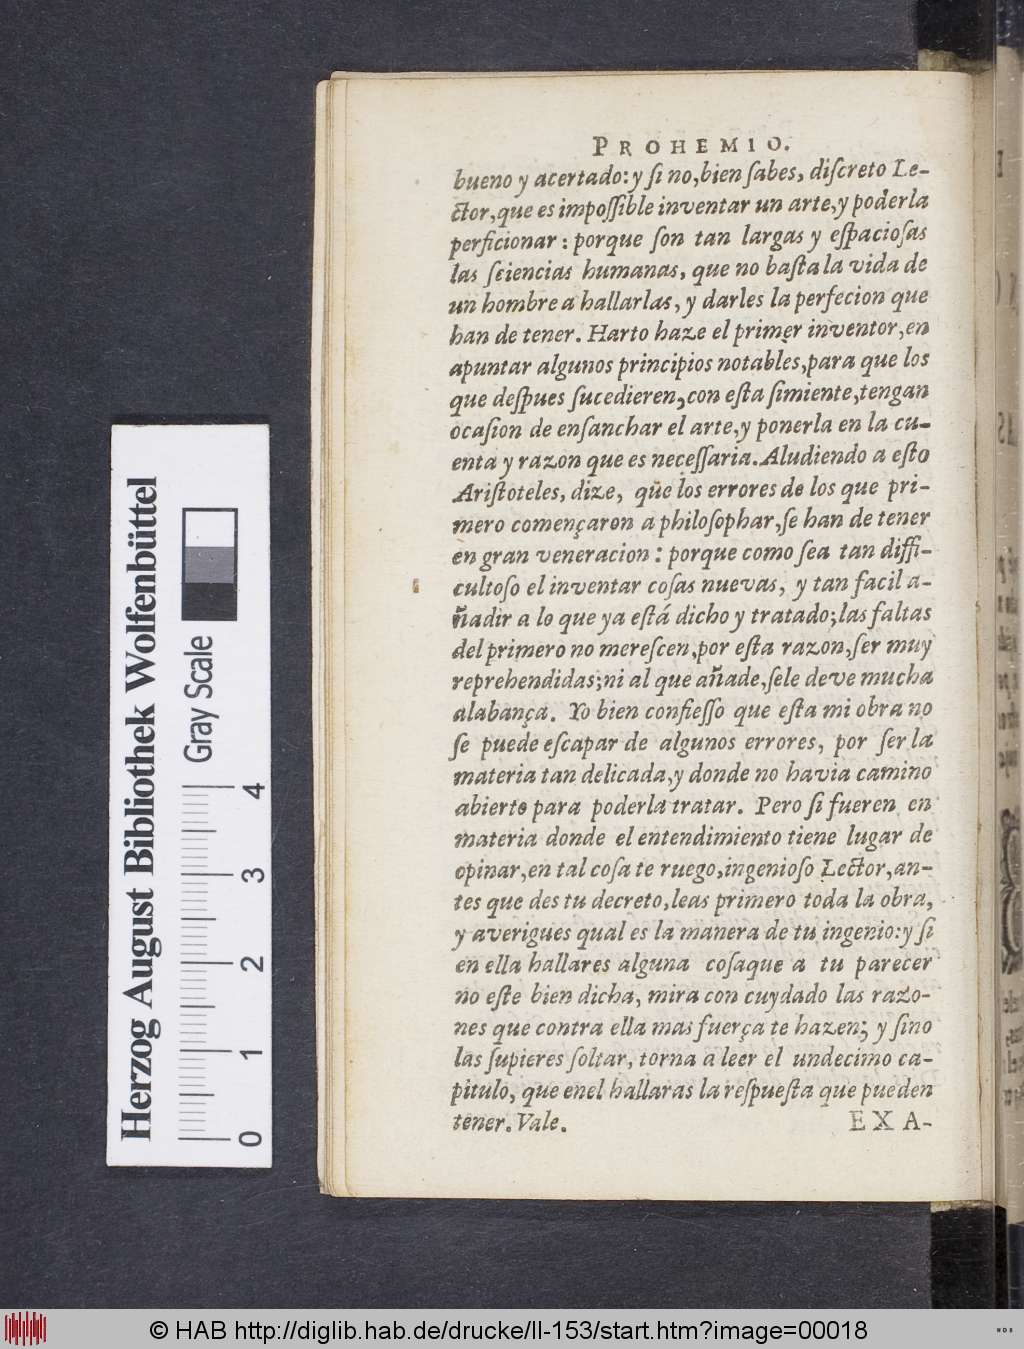 PROHEMIO.
bueno y acertado: y ſi no, bien ſabes, diſcreto Le-
ctor, que es impoſſible inventar un arte, y poderla
perficionar: porque ſon tan largas y eſpacioſas
las ſciencias humanas, que no baſta la vida de
un hombre a hallarlas, y darles la perfecion que
han de tener. Harto haze el primer inventor, en
apuntar algunos principios notables, para que los
que deſpues ſucedieren, con eſta ſimiente, tengan
ocaſion de enſanchar el arte, y ponerla en la cu-
enta y razon que es neceſſaria. Aludiendo a eſto
Ariſtoteles, dize, que los errores de los que pri-
mero començaron a philoſophar, ſe han de tener
en gran veneracion: porque como ſea tan diffi-
cultoſo el inventar coſas nuevas, y tan facil a-
ñadir a lo que ya eſtá dicho y tratado; las faltas
del primero no mereſcen, por eſta razon, ſer muy
reprehendidas; ni al que añade, ſele deve mucha
alabança. Yo bien confieſſo que eſta mi obra no
ſe puede eſcapar de algunos errores, por ſer la
materia tan delicada, y donde no havia camino
abierto para poderla tratar. Pero ſi fueren en
materia donde el entendimiento tiene lugar de
opinar, en tal coſa te ruego, ingenioſo Lector, an-
tes que des tu decreto, leas primero toda la obra,
y averigues qual es la manera de tu ingenio: y ſi
en ella hallares alguna coſaque a tu parecer
no eſte bien dicha, mira con cuydado las razo-
nes que contra ella mas fuerça te hazen; y ſino
las ſupieres ſoltar, torna a leer el undecimo ca-
pitulo, que enel hallaras la reſpueſta que pueden
tener. Vale.
EXA-
Herzog August Bibliothek Wolfenbüttel
Gray Scale
0 1 2 3 4
© HAB http://diglib.hab.de/drucke/ll-153/start.htm?image=00018